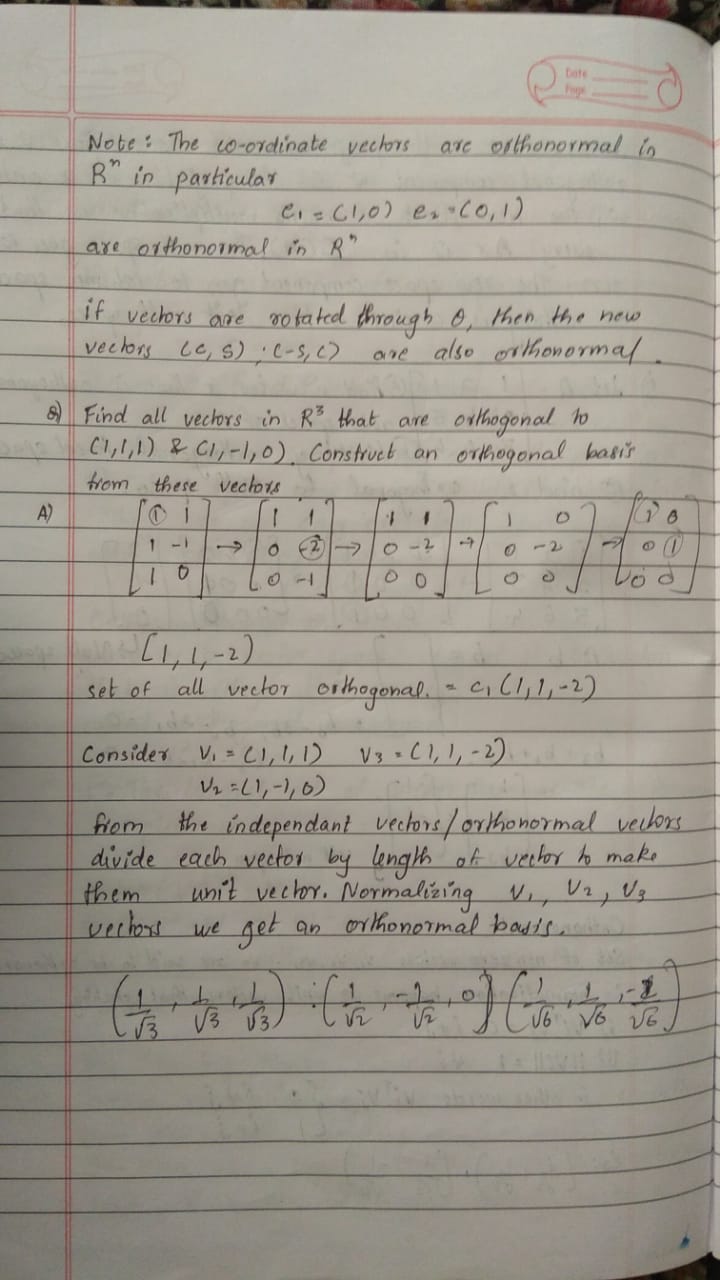 Date
Page
Note : The co-ordinate vectors are orthonormal in
Rⁿ in particular
e₁ = (1,0) e₂ = (0,1)
are orthonormal in Rⁿ
if vectors are rotated through θ, then the new
vectors (c, s) ; (-s, c) are also orthonormal.
Q) Find all vectors in R³ that are orthogonal to
(1,1,1) & (1,-1,0). Construct an orthogonal basis
from these vectors
A) [① 1] → [1 1] → [1 1] → [1 0] → [① 0]
[1 -1] [0 (-2)] [0 -2] [0 -2] [0 ①]
[1 0] [0 -1] [0 0] [0 0] [0 0]
[1, 1, -2)
set of all vector orthogonal. = c₁ (1,1,-2)
Consider V₁ = (1,1,1) V₃ = (1,1,-2)
V₂ = (1,-1,0)
from the independant vectors/orthonormal vectors
divide each vector by length of vector to make
them unit vector. Normalizing V₁, V₂, V₃
vectors we get an orthonormal basis.
(1/√3, 1/√3, 1/√3) ; (1/√2, -1/√2, 0) (1/√6, 1/√6, -2/√6)